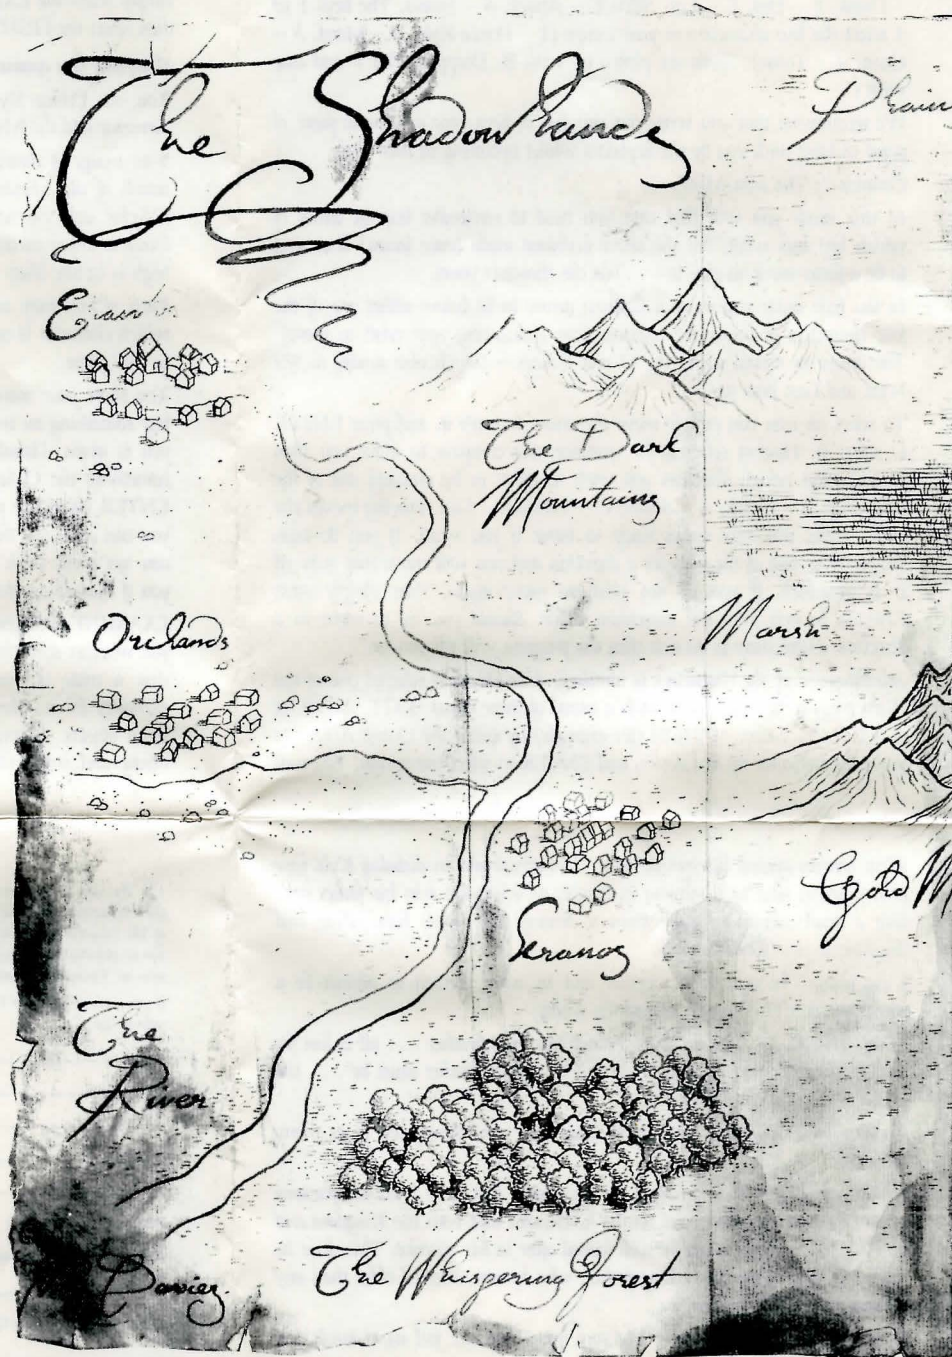 The Shadowlands
Plain
The Dark
Mountains
Marsh
Orchands
Gold M
Seranos
The
River
The Whispering Forest